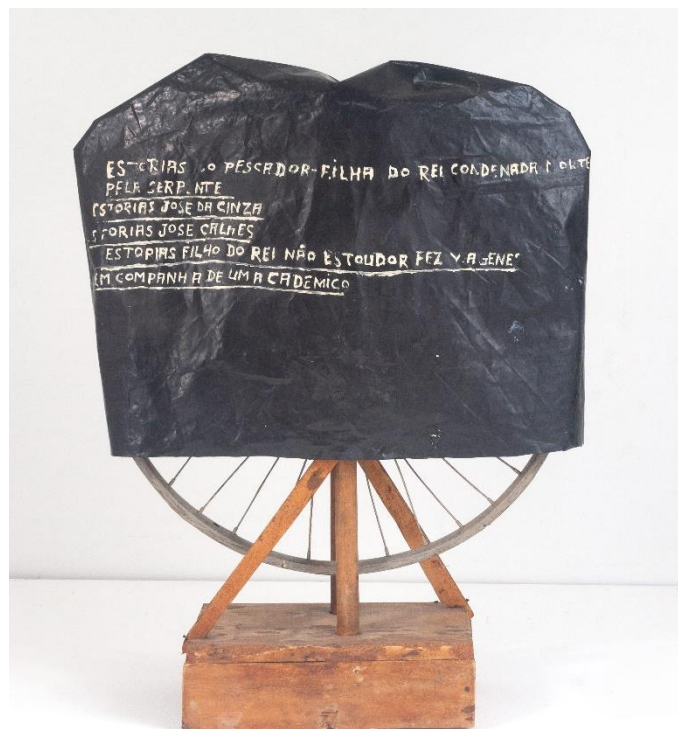 ESTORIAS DO PESCADOR-FILHA DO REI CODENADA
PELA SERPENTE
ESTORIAS JOSE DA CINZA
ESTORIAS JOSE
ESTORIAS FILHO DO REI NÃO ESTOUDOR FEZ VIAGENES
EM COMPANHIA DE UM ACADEMICO